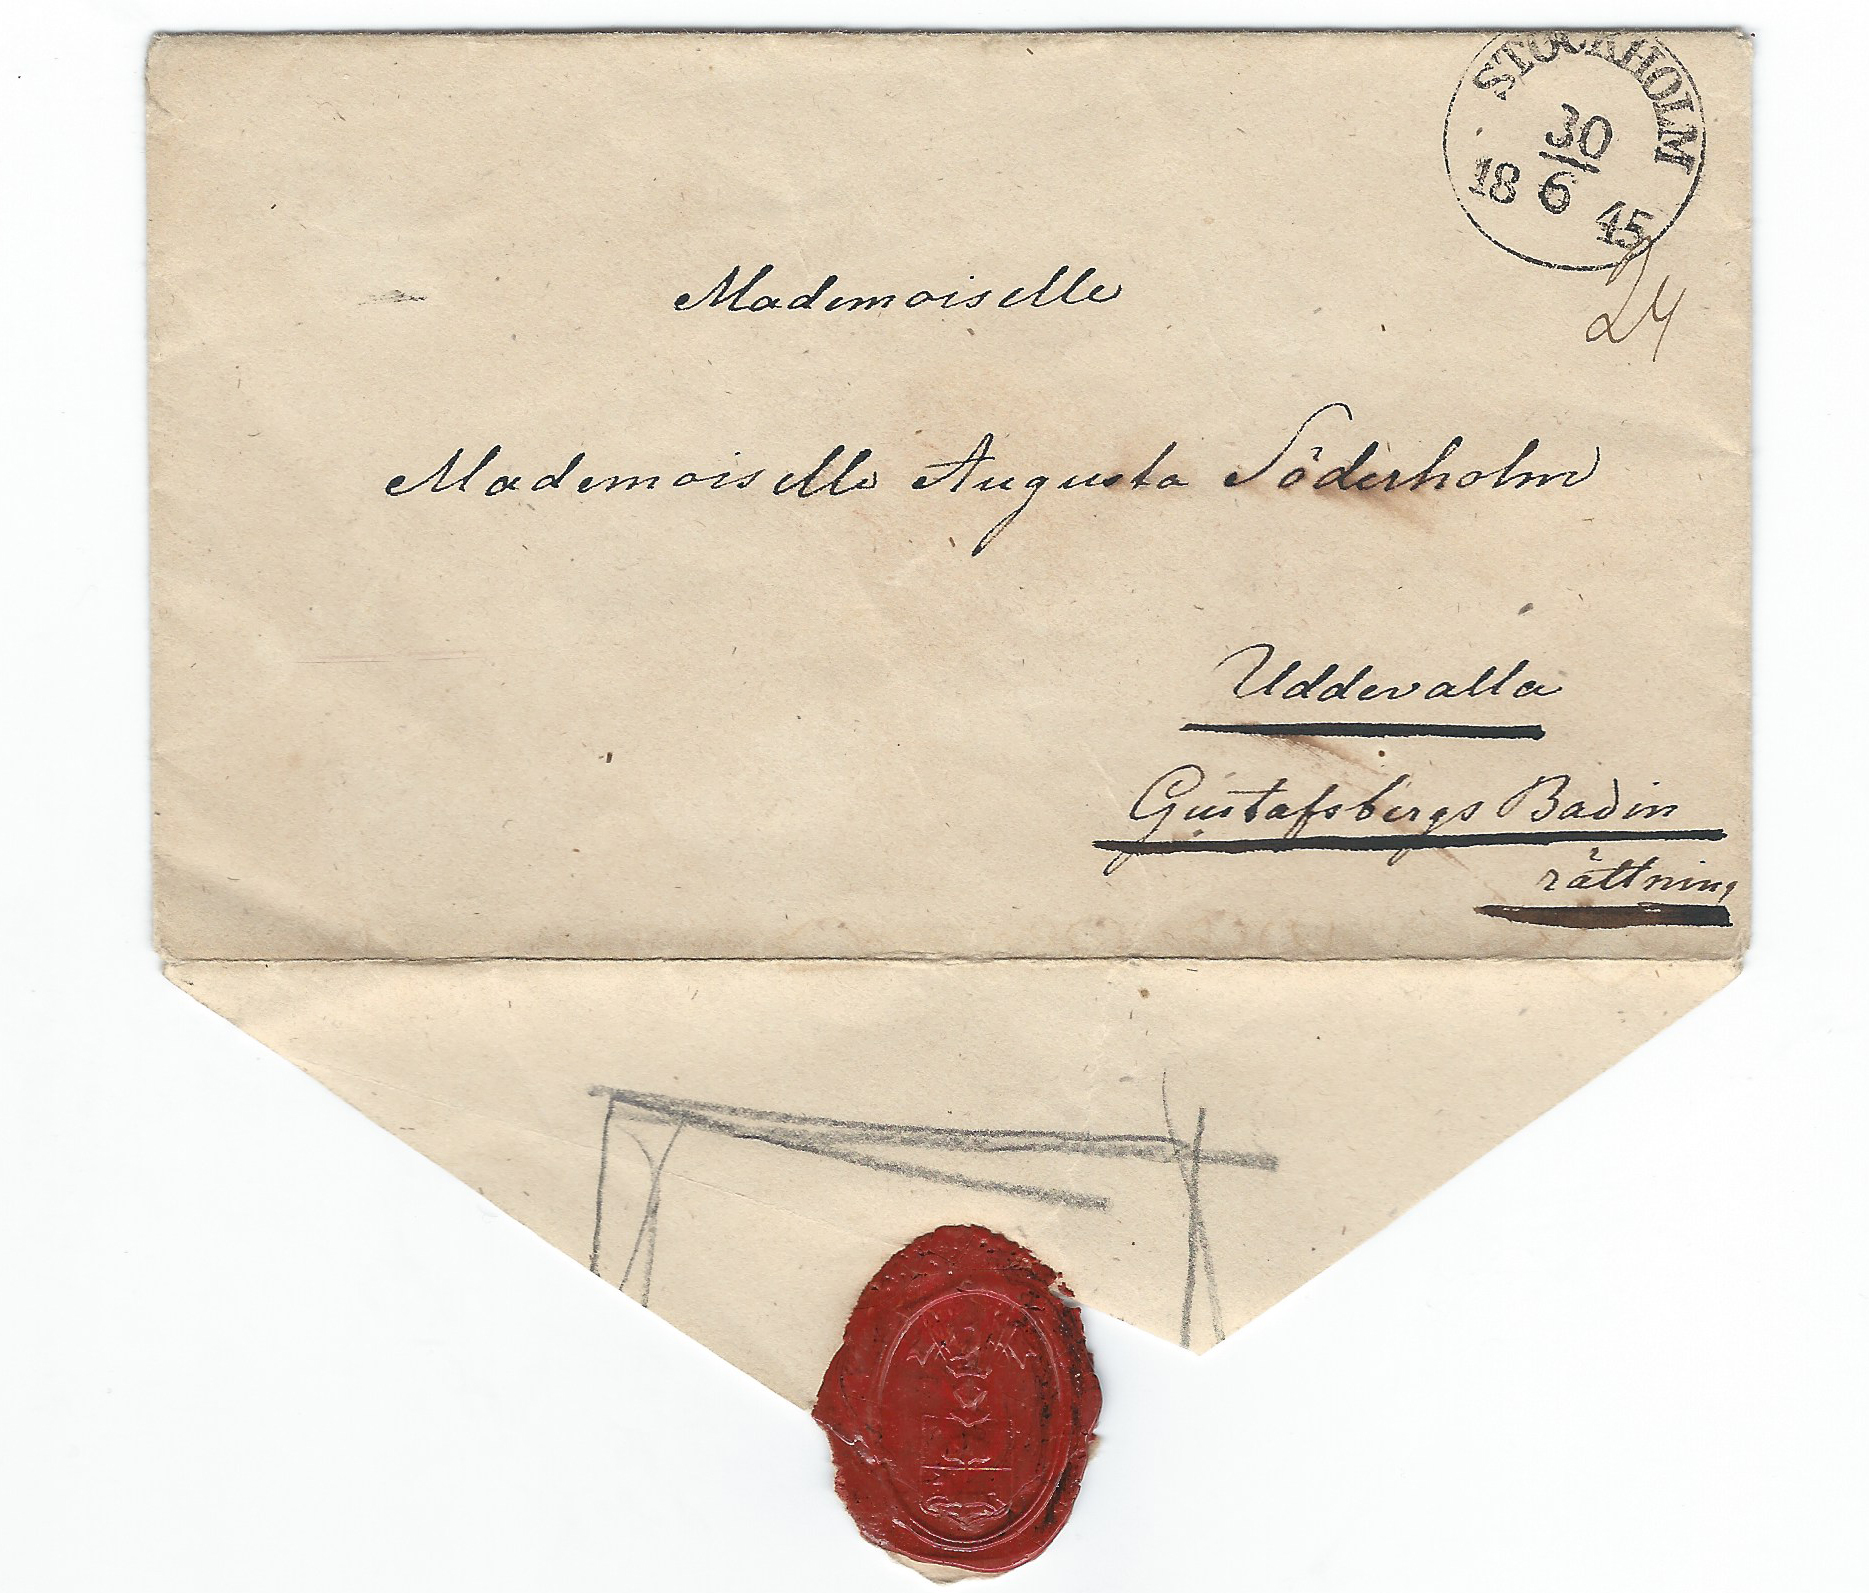 STOCKHOLM
30
18 6 45
24
Mademoiselle
Mademoiselle Augusta Söderholm
Uddevalla
Gustafsbergs Badin
rättning